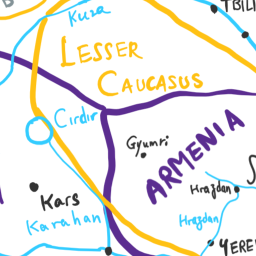 Kura
TBILI
LESSER
CAUCASUS
Çirdir
Gyumri
ARMENIA
Kars
Karahan
Hrazdan
Hrazdan
YERE